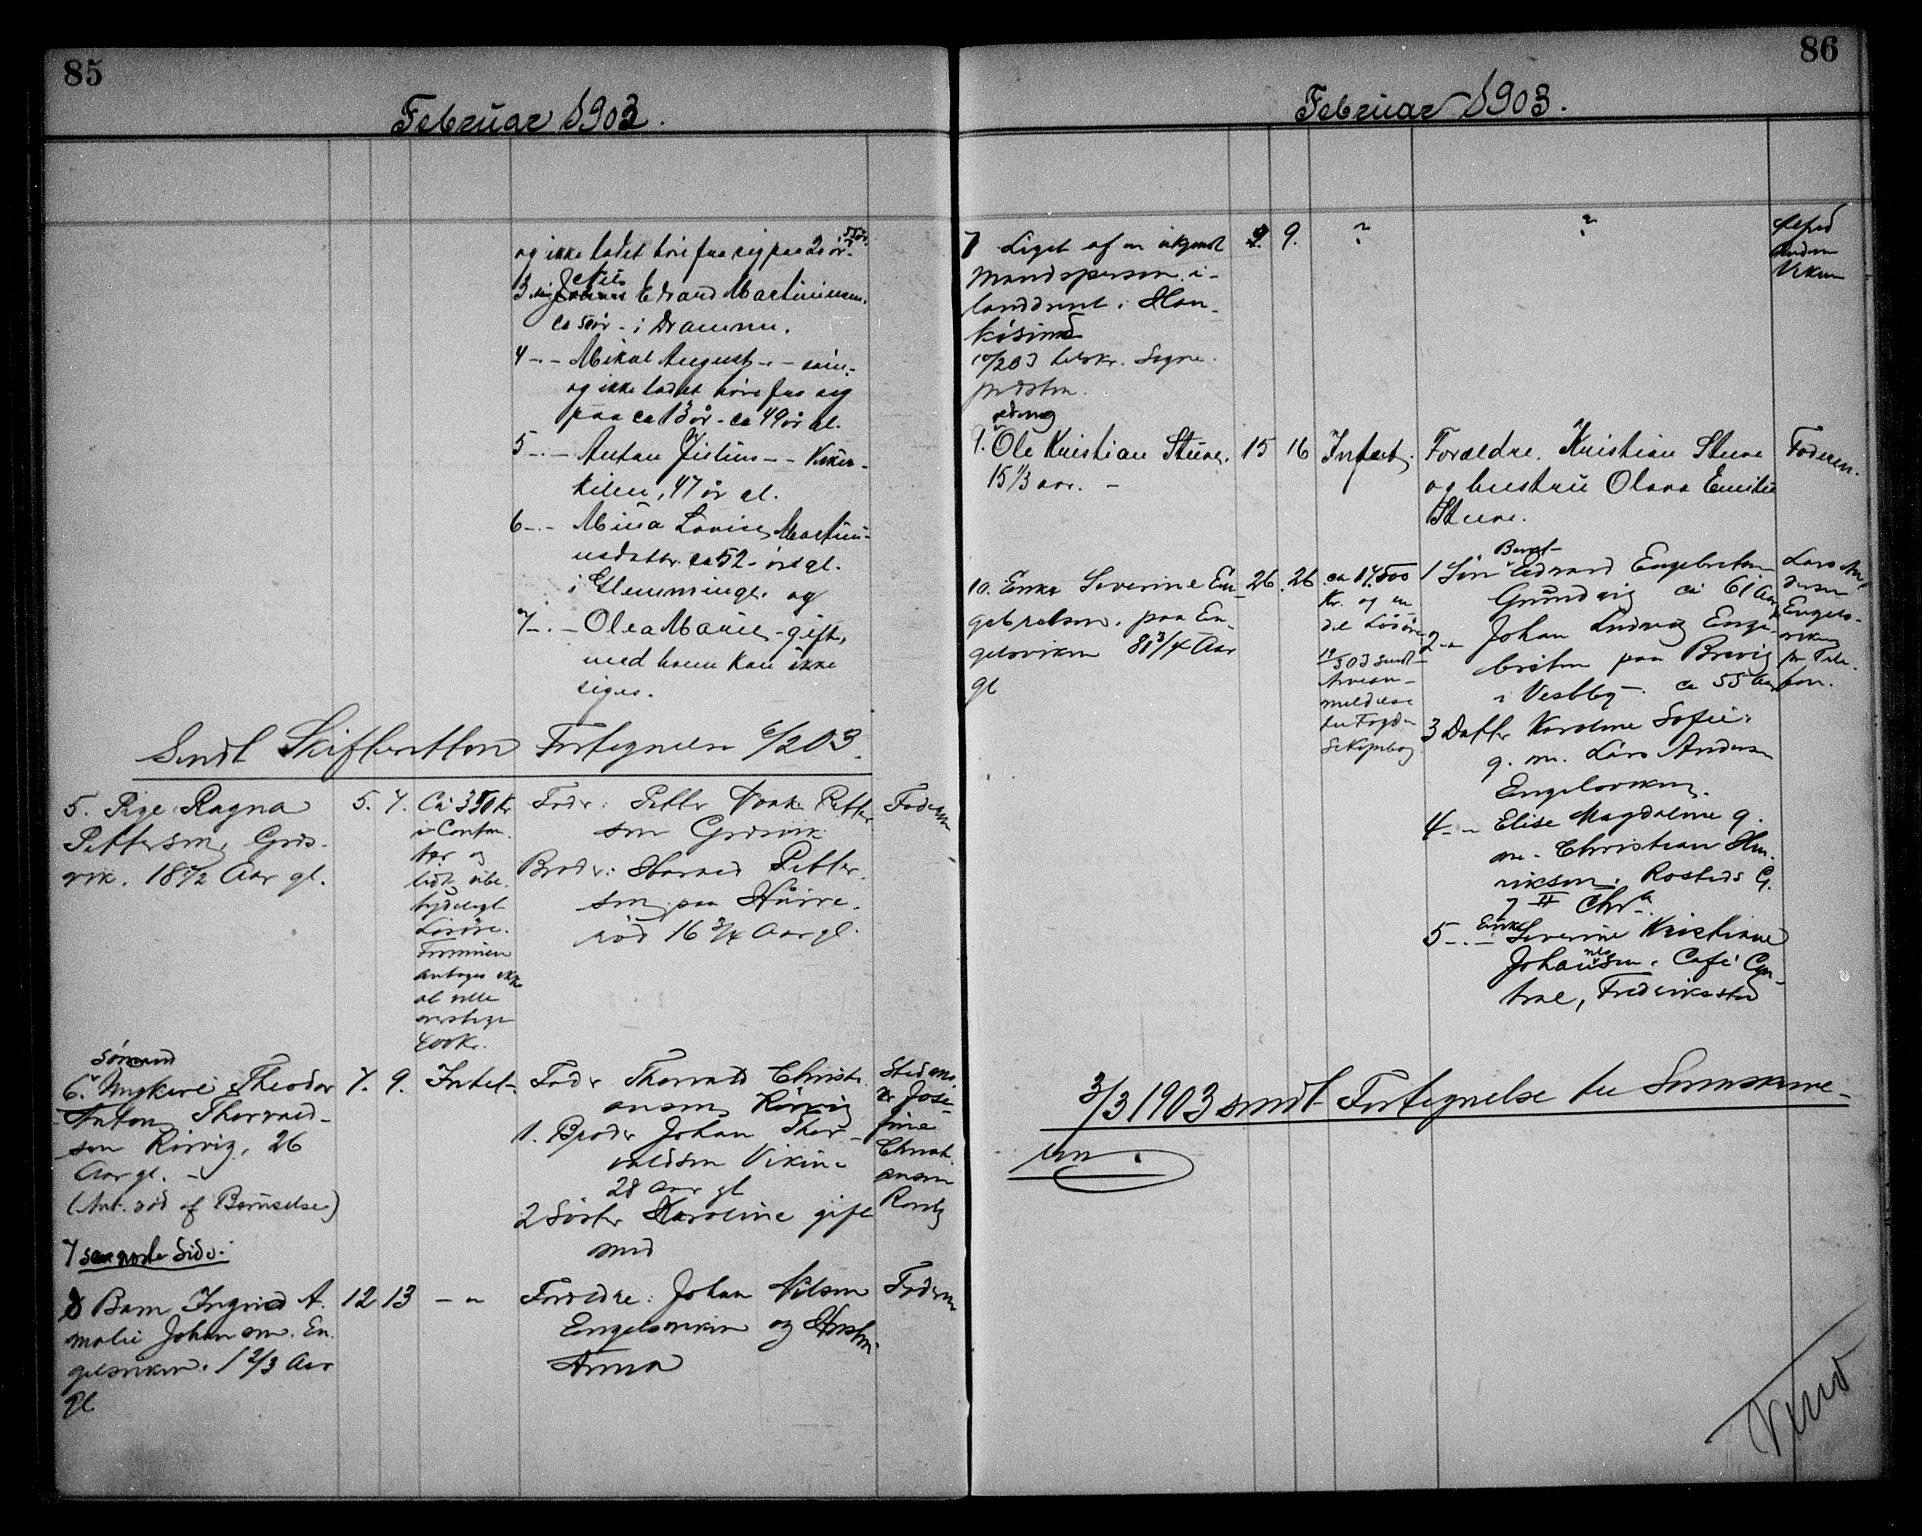 85
Februar 1903.
og ikke ladet høre fra sig paa 2 år.
3. Nils Edvard Martiniusen,
ca 50 år - i Drammen.
4 -.- Mikal August -.-
og ikke ladet høre fra sig
paa ca 13 år - ca 49 år gl.
5 -.- Anton Julius - - Viker-
kilen, 47 år gl.
6 -.- Mina Lovise Martini-
usdatter ca 52 - årgl.
i Glemminge og
7 -.- Olea Marie - gift,
med hvem kan ikke
siges.
Sendt Skifteretten Fortegnelse 6/2 03.
5. Pige Ragna
Pettersen, Græs-
vik. 18 1/2 Aar gl.
5. 7.
Ca 350 Kr
i Conten-
ter og
lidt ube-
tydeligt
Løsøre.
Formuen
antages ikke
at ville
overstige
400 kr.
Fader: Petter Petter
sen Græsvik
Broder: Harald Petter-
sen paa
rød 16 3/4 Aar gl.
Faderen
Sømand
6. Ungkarl Theodor
Anton Thorvald-
sen Rørvig, 26
Aar gl. -
(Ant. død af Bevuselse)
7. 9. Intet -
Fader Thorvald Christi
ansen Rørvig
1. Broder Johan Thor-
valdsen Viken
28 Aar gl
2 Søster Karoline gift
med
Josefine
Christi
ansen
7 se næste Side.
8 Barn Ingrid A.
malie Johansen. En.
gelsviken. 1 2/3 Aar
gl
12 13 - "
Forældre: Johan Nilsen
Engelsviken og Hustru
Anna
Faderen
86
Februar 1903.
7 Liget af en ukjendt
Mandsperson i-
landdrevet i Han-
køsund
10/2 03 beskr. Sogne
præsten.
9. 9. ? ?
Anders
Viken
9. Ole Kristian Stene.
15 1/3 aar. -
15 16 Intet.
Forældre. Kristian Stene
og hustru Olava Emilie
Stene.
Faderen.
10. Enke Severine En-
gebretsen. paa En-
gelsviken 81 3/4 Aar
gl
26. 26
ca 17,500
Kr. og en
del Løsøre
sendt
Arvean-
meldelse
til Fogden
1 Søn Bernt Edvard Engebretsen
Grundvig ca 61 Aar
2 - " Johan Ludvig Enge-
bretsen paa Brevig
i Vestby - ca 55 Aar
3 Datter Karoline Sofie.
g. m. Lars Andersen
Engelsviken.
4 - " Elise Magdalene g.
m. Christian Hen-
riksen. Rosteds G.
7 II Chra.
5 -.- Enke Severine Kristiane
Johannesen. Café Cen-
tral, Fredriksstad
Lars An-
dersen
Engels-
viken
pr Tele-
fon.
3/3 1903 sendt Fortegnelse til Sorenskrive-
ren.
Vend